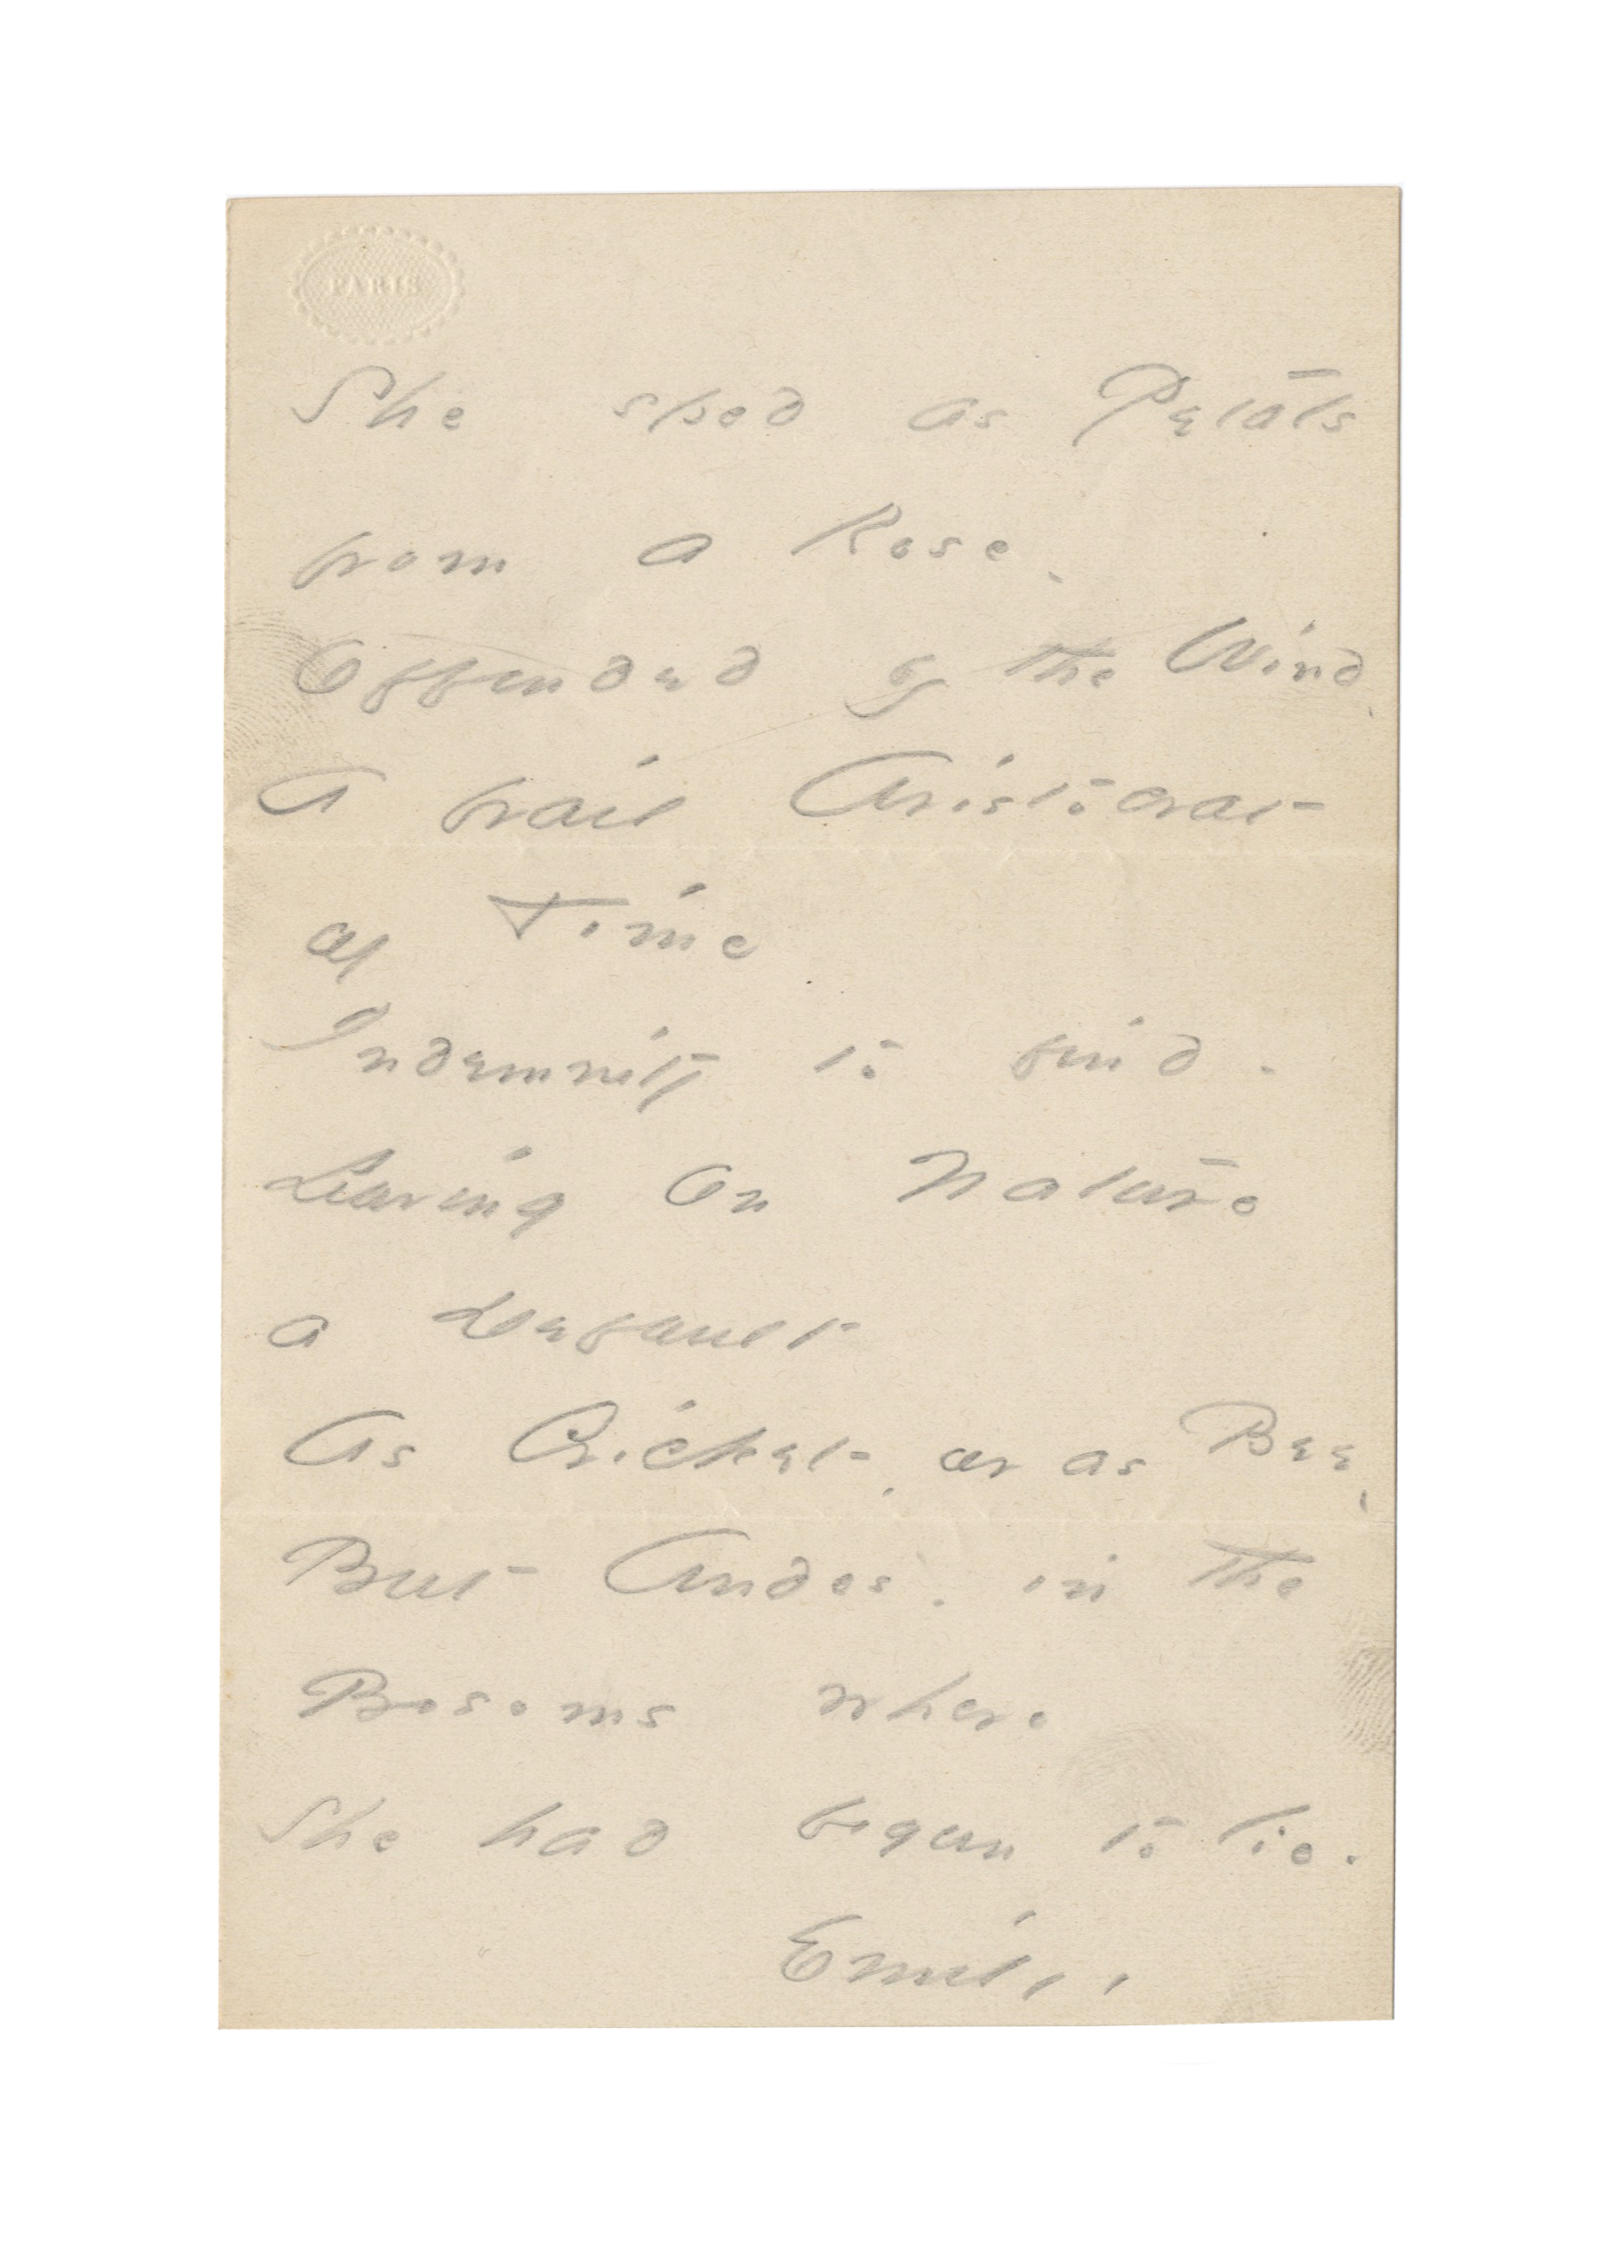 PARIS
She sped as Petals
from a Rose,
Offended by the Wind,
A frail Aristocrat
of Time
Indemnity to find -
Leaving on Nature
a Default
As Cricket, or as Bee,
But Andes, in the
Bosoms where
She had begun to lie -
Emily,